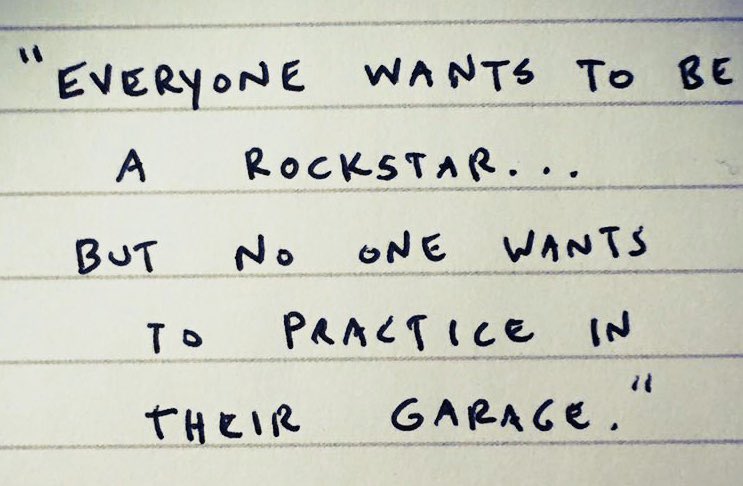 "EVERYONE WANTS TO BE
A ROCKSTAR...
BUT NO ONE WANTS
TO PRACTICE IN
THEIR GARAGE."